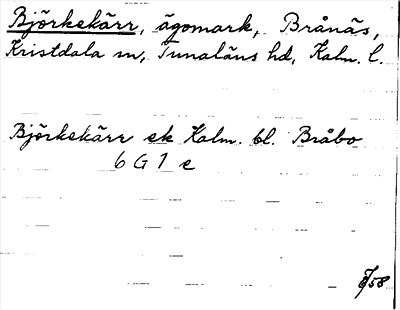 Björkekärr, ägomark, Brånäs,
Kristdala sn, Tunaläns hd, Kalm. l.
Björkekärr ek Kalm. bl. Bråbo
6 G 1 e
/58